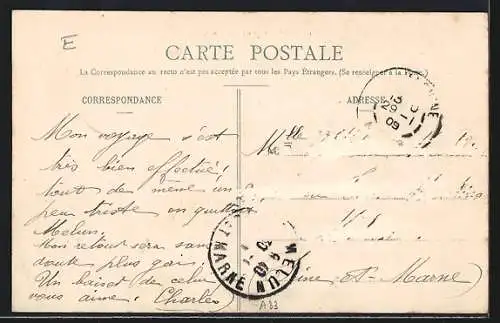 E
CARTE POSTALE
La Correspondance au recto n'est pas acceptée par tous les Pays Étrangers. (Se renseigner à la Poste)
CORRESPONDANCE
ADRESSE
Mon voyage s'est
très bien effectué!
tout de même un
peu triste en quittant
Melun.
Mon retour sera sans
doute plus gai.
Un baiser de celui
vous aime. Charles
Melle
13
29 - 1
09
MELUN
ET MARNE
Seine-et-Marne
A33